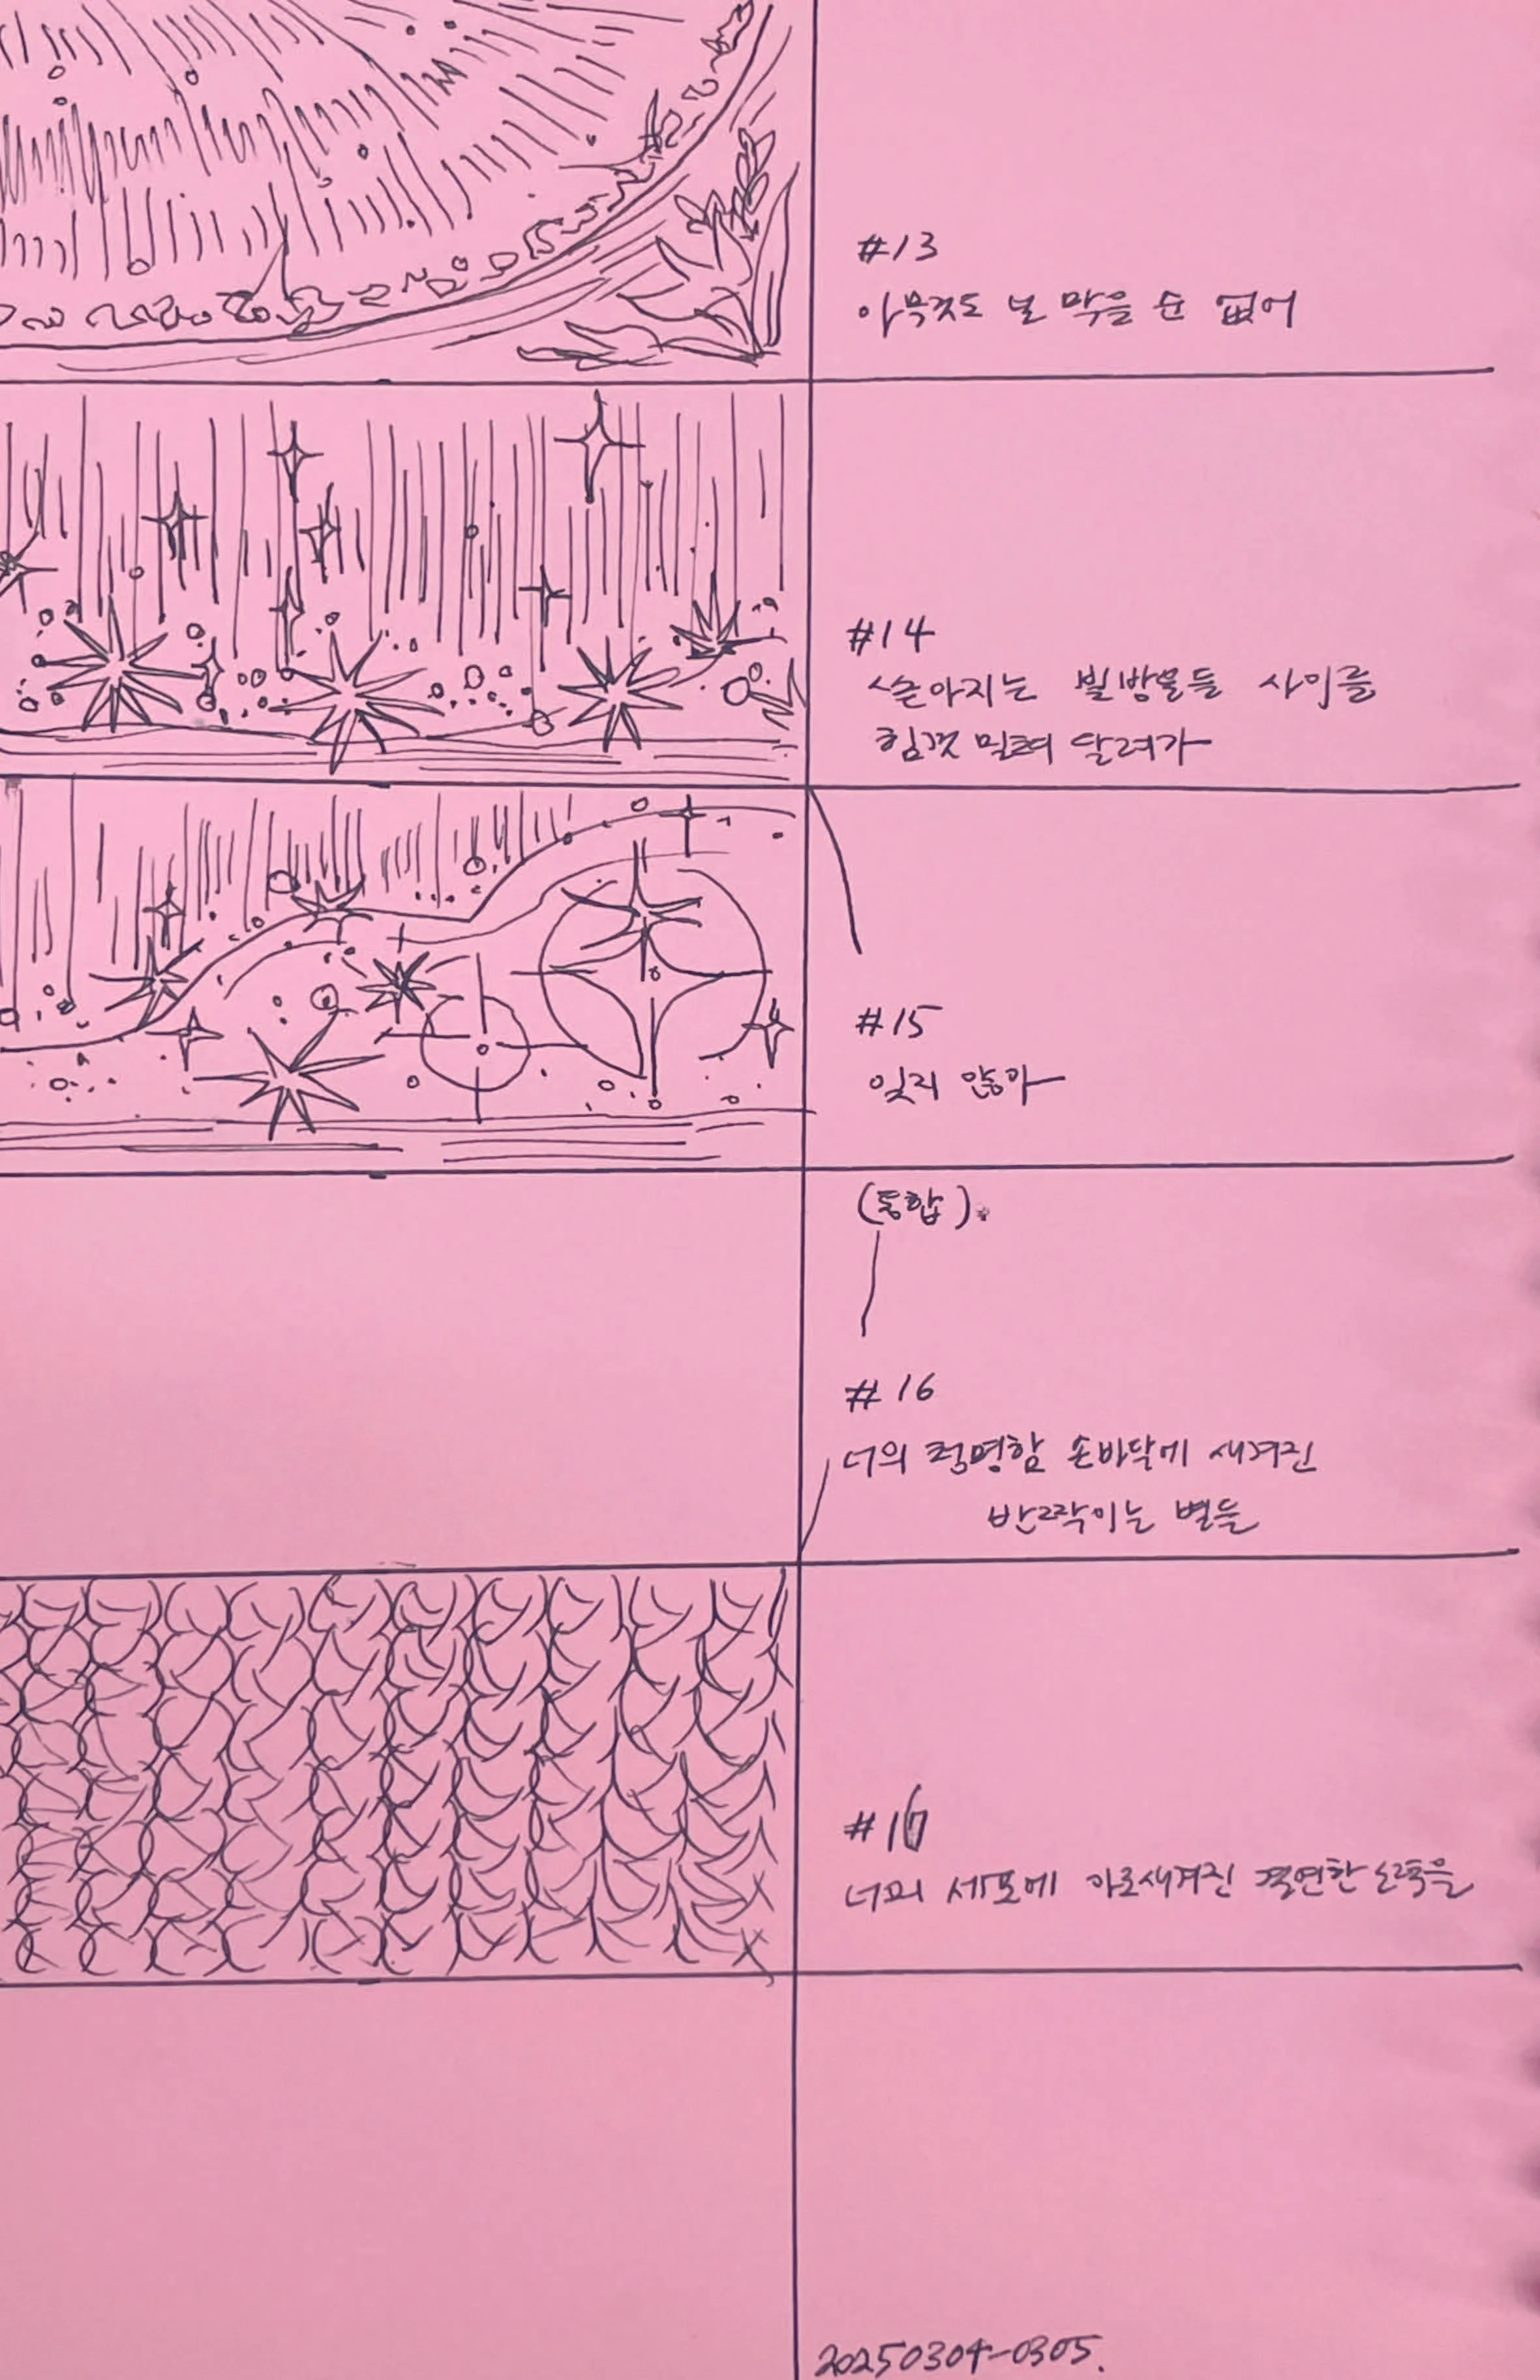 #13
아무것도 널 막을 순 없어
#14
쏟아지는 빛방울들 사이를
힘껏 밀려 달려가
#15
잊지 않아
(통합).
#16
너의 투명한 손바닥에 새겨진
반짝이는 별들
#16
너의 세포에 아로새겨진 결연한 노력을
20250304-0305.